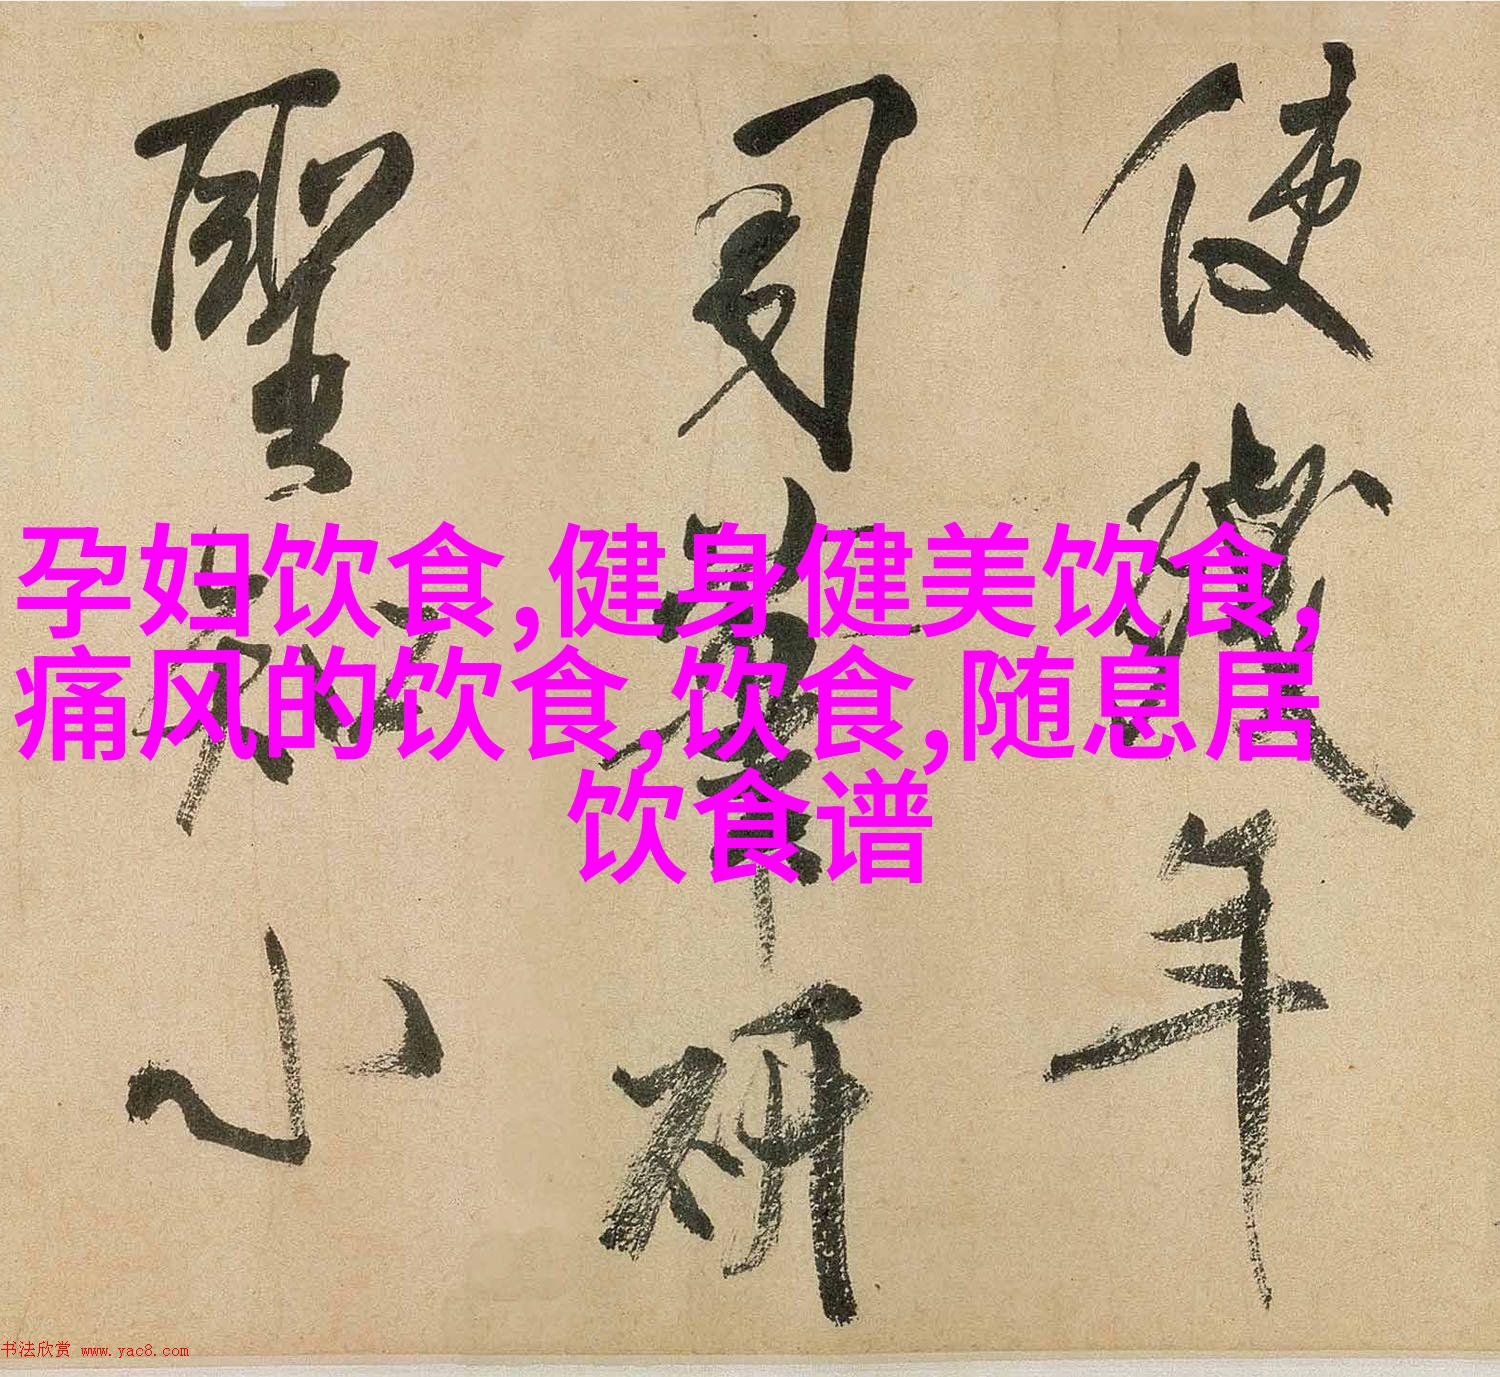 使
年
司
研
聖
小
孕妇饮食,健身健美饮食,
痛风的饮食,饮食,随息居
饮食谱
书法欣赏 www.yac8.com